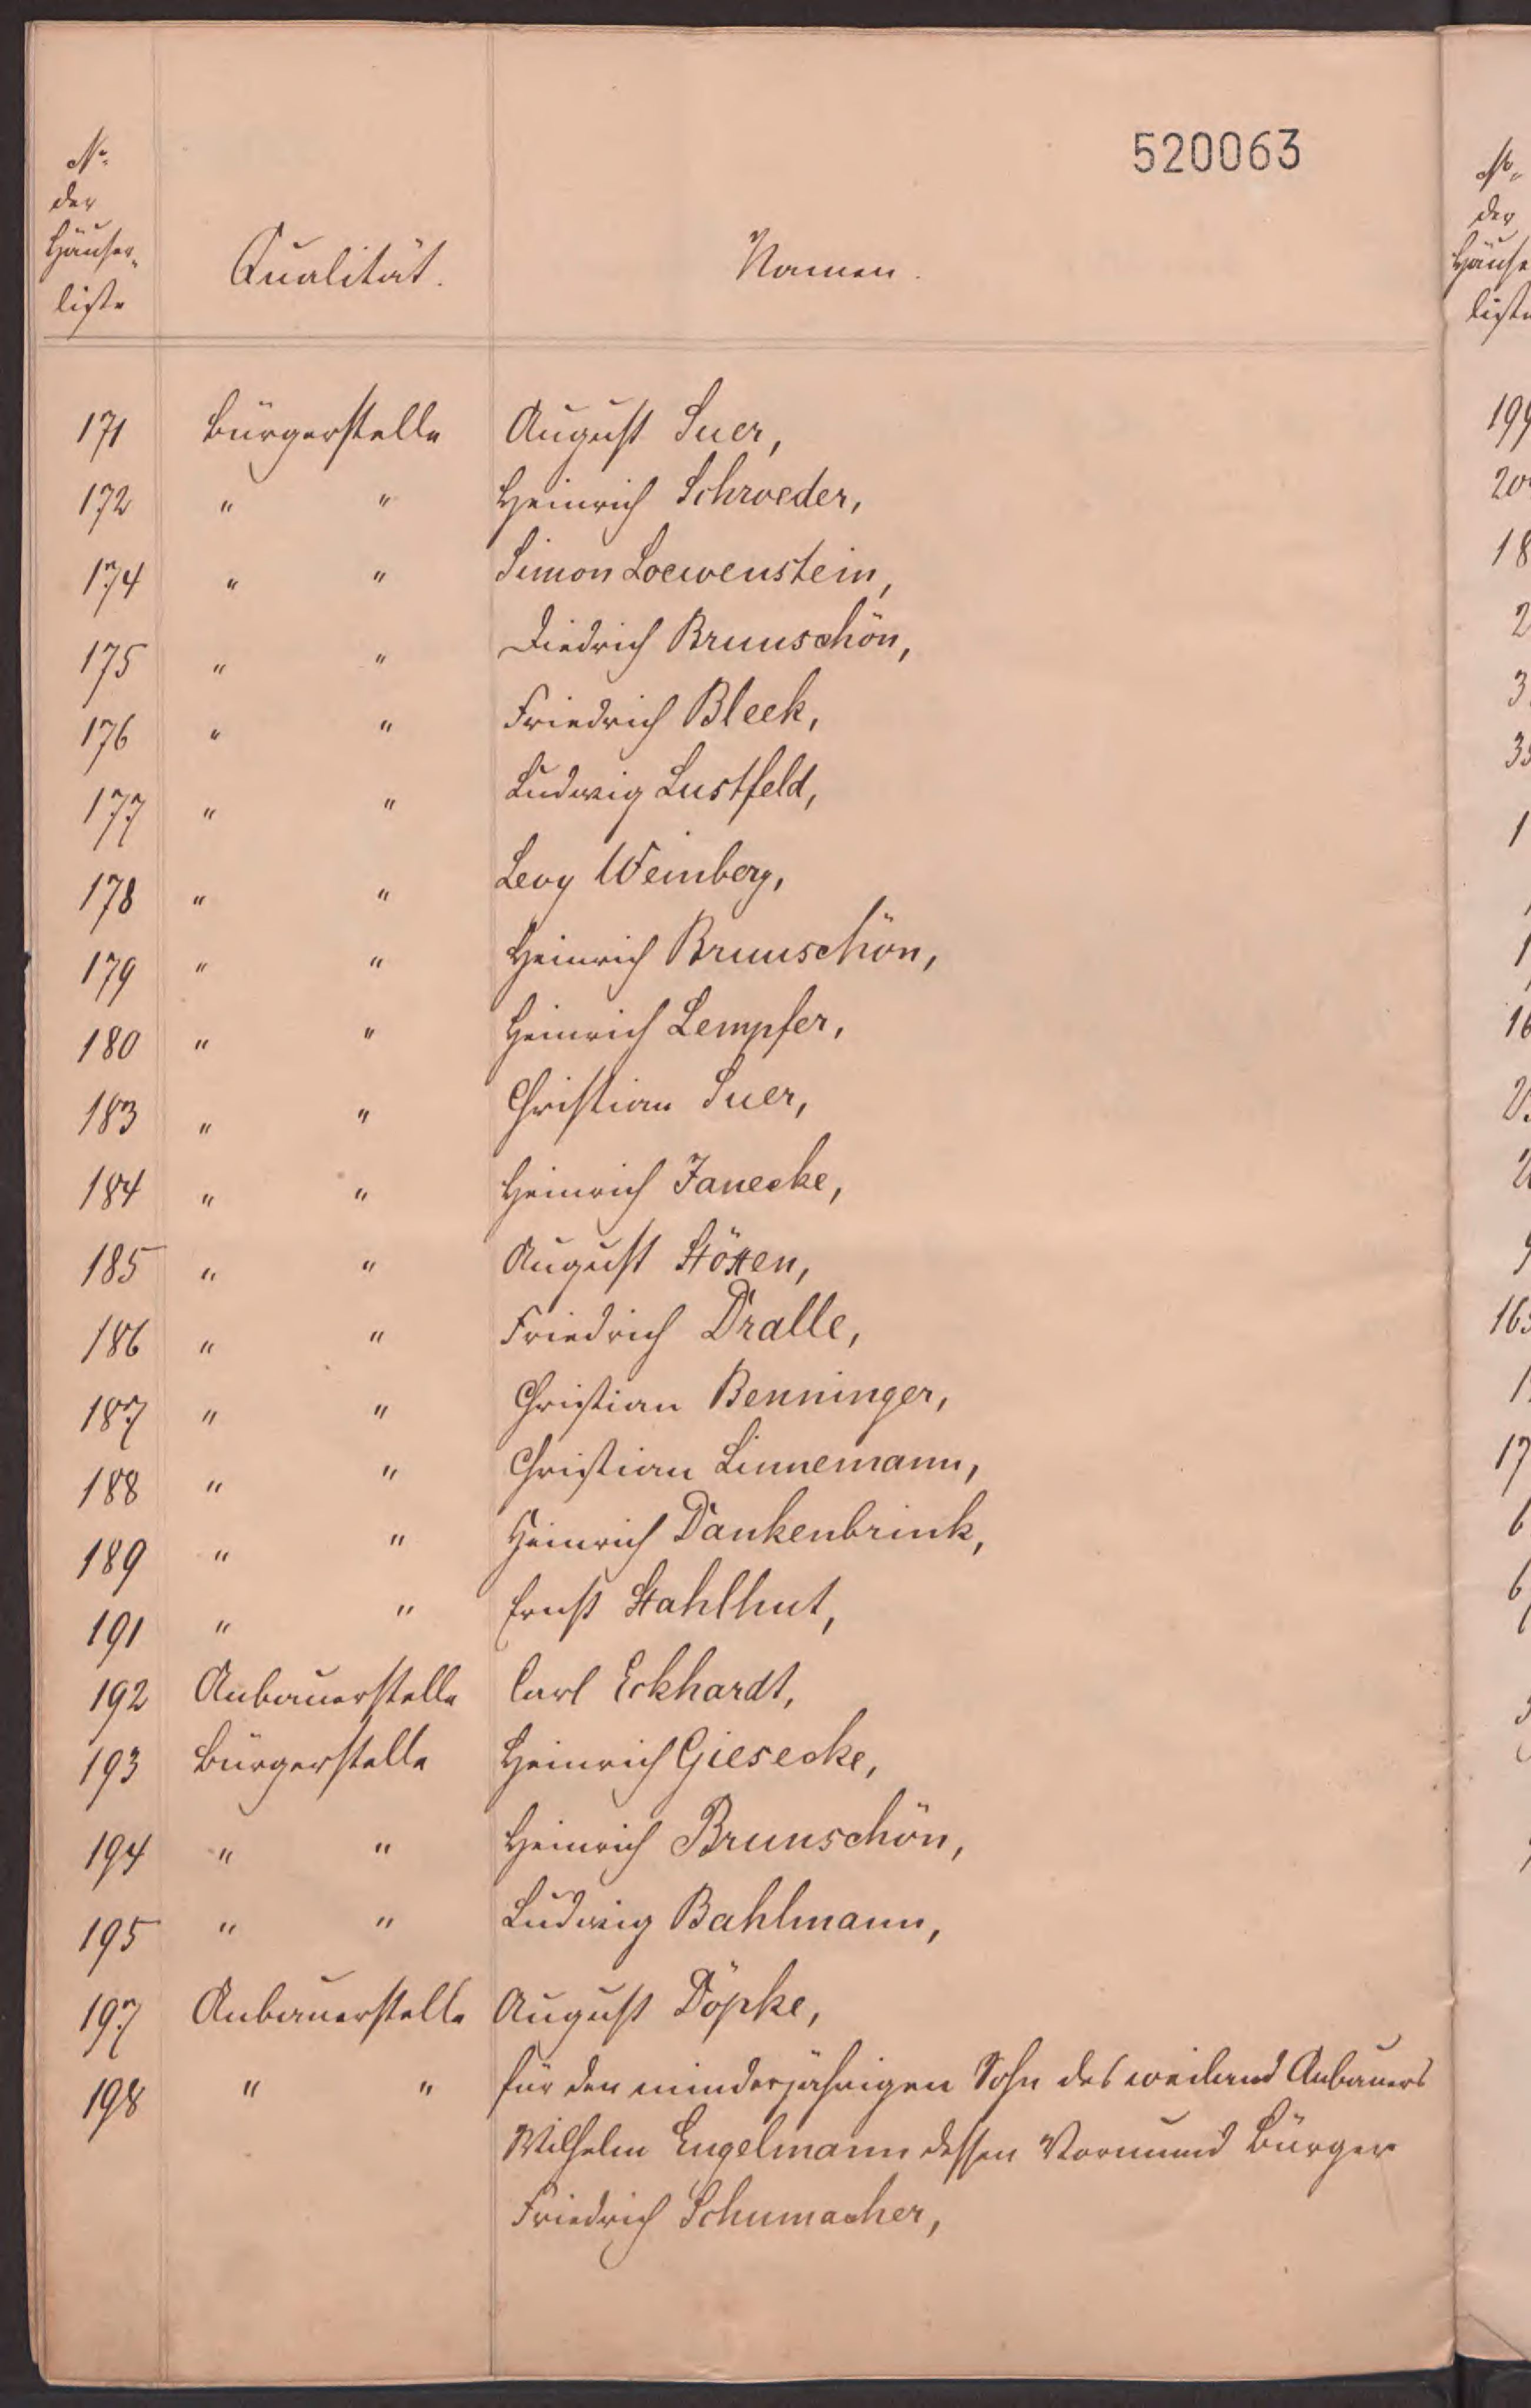 520063
No.
der
Häuser-
liste
Qualität.
Namen.
171 Bürgerstelle August Suer,
172 " " Heinrich Schroeder,
174 " " Simon Loewenstein,
175 " " Diedrich Brunschön,
176 " " Friedrich Bleek,
177 " " Ludwig Lustfeld,
178 " " Levy Weinberg,
179 " " Heinrich Brunschön,
180 " " Heinrich Lempfer,
183 " " Christian Suer,
184 " " Heinrich Janecke,
185 " " August Stötten,
186 " " Friedrich Dralle,
187 " " Christian Benninger,
188 " " Christian Linnemann,
189 " " Heinrich Dankenbrink,
191 " " Ernst Stahlhut,
192 Anbauerstelle Carl Eckhardt,
193 Bürgerstelle Heinrich Giesecke,
194 " " Heinrich Brunschön,
195 " " Ludwig Bahlmann,
197 Anbauerstelle August Döpke,
198 " " für den minderjährigen Sohn des weiland Anbauers
Wilhelm Engelmann dessen Vormund Bürger
Friedrich Schumacher,
No.
der